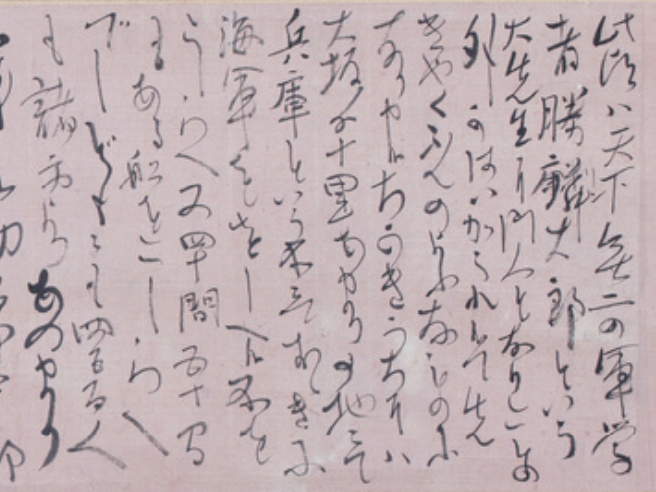 此頃ハ天下無二の軍学
者勝麟大郎という
大先生に門人となりことの
外かはいがられ候て先
きやくぶんのよふなものに
なり申候ちかきうちにハ
大坂より十里あまりの地ニて
兵庫という所ニておゝきに
海軍ををしへ候所を
こしらへ又四十間五十間
もある船をこしらへ
でしどもニも四五百人
も諸方よりあつまり